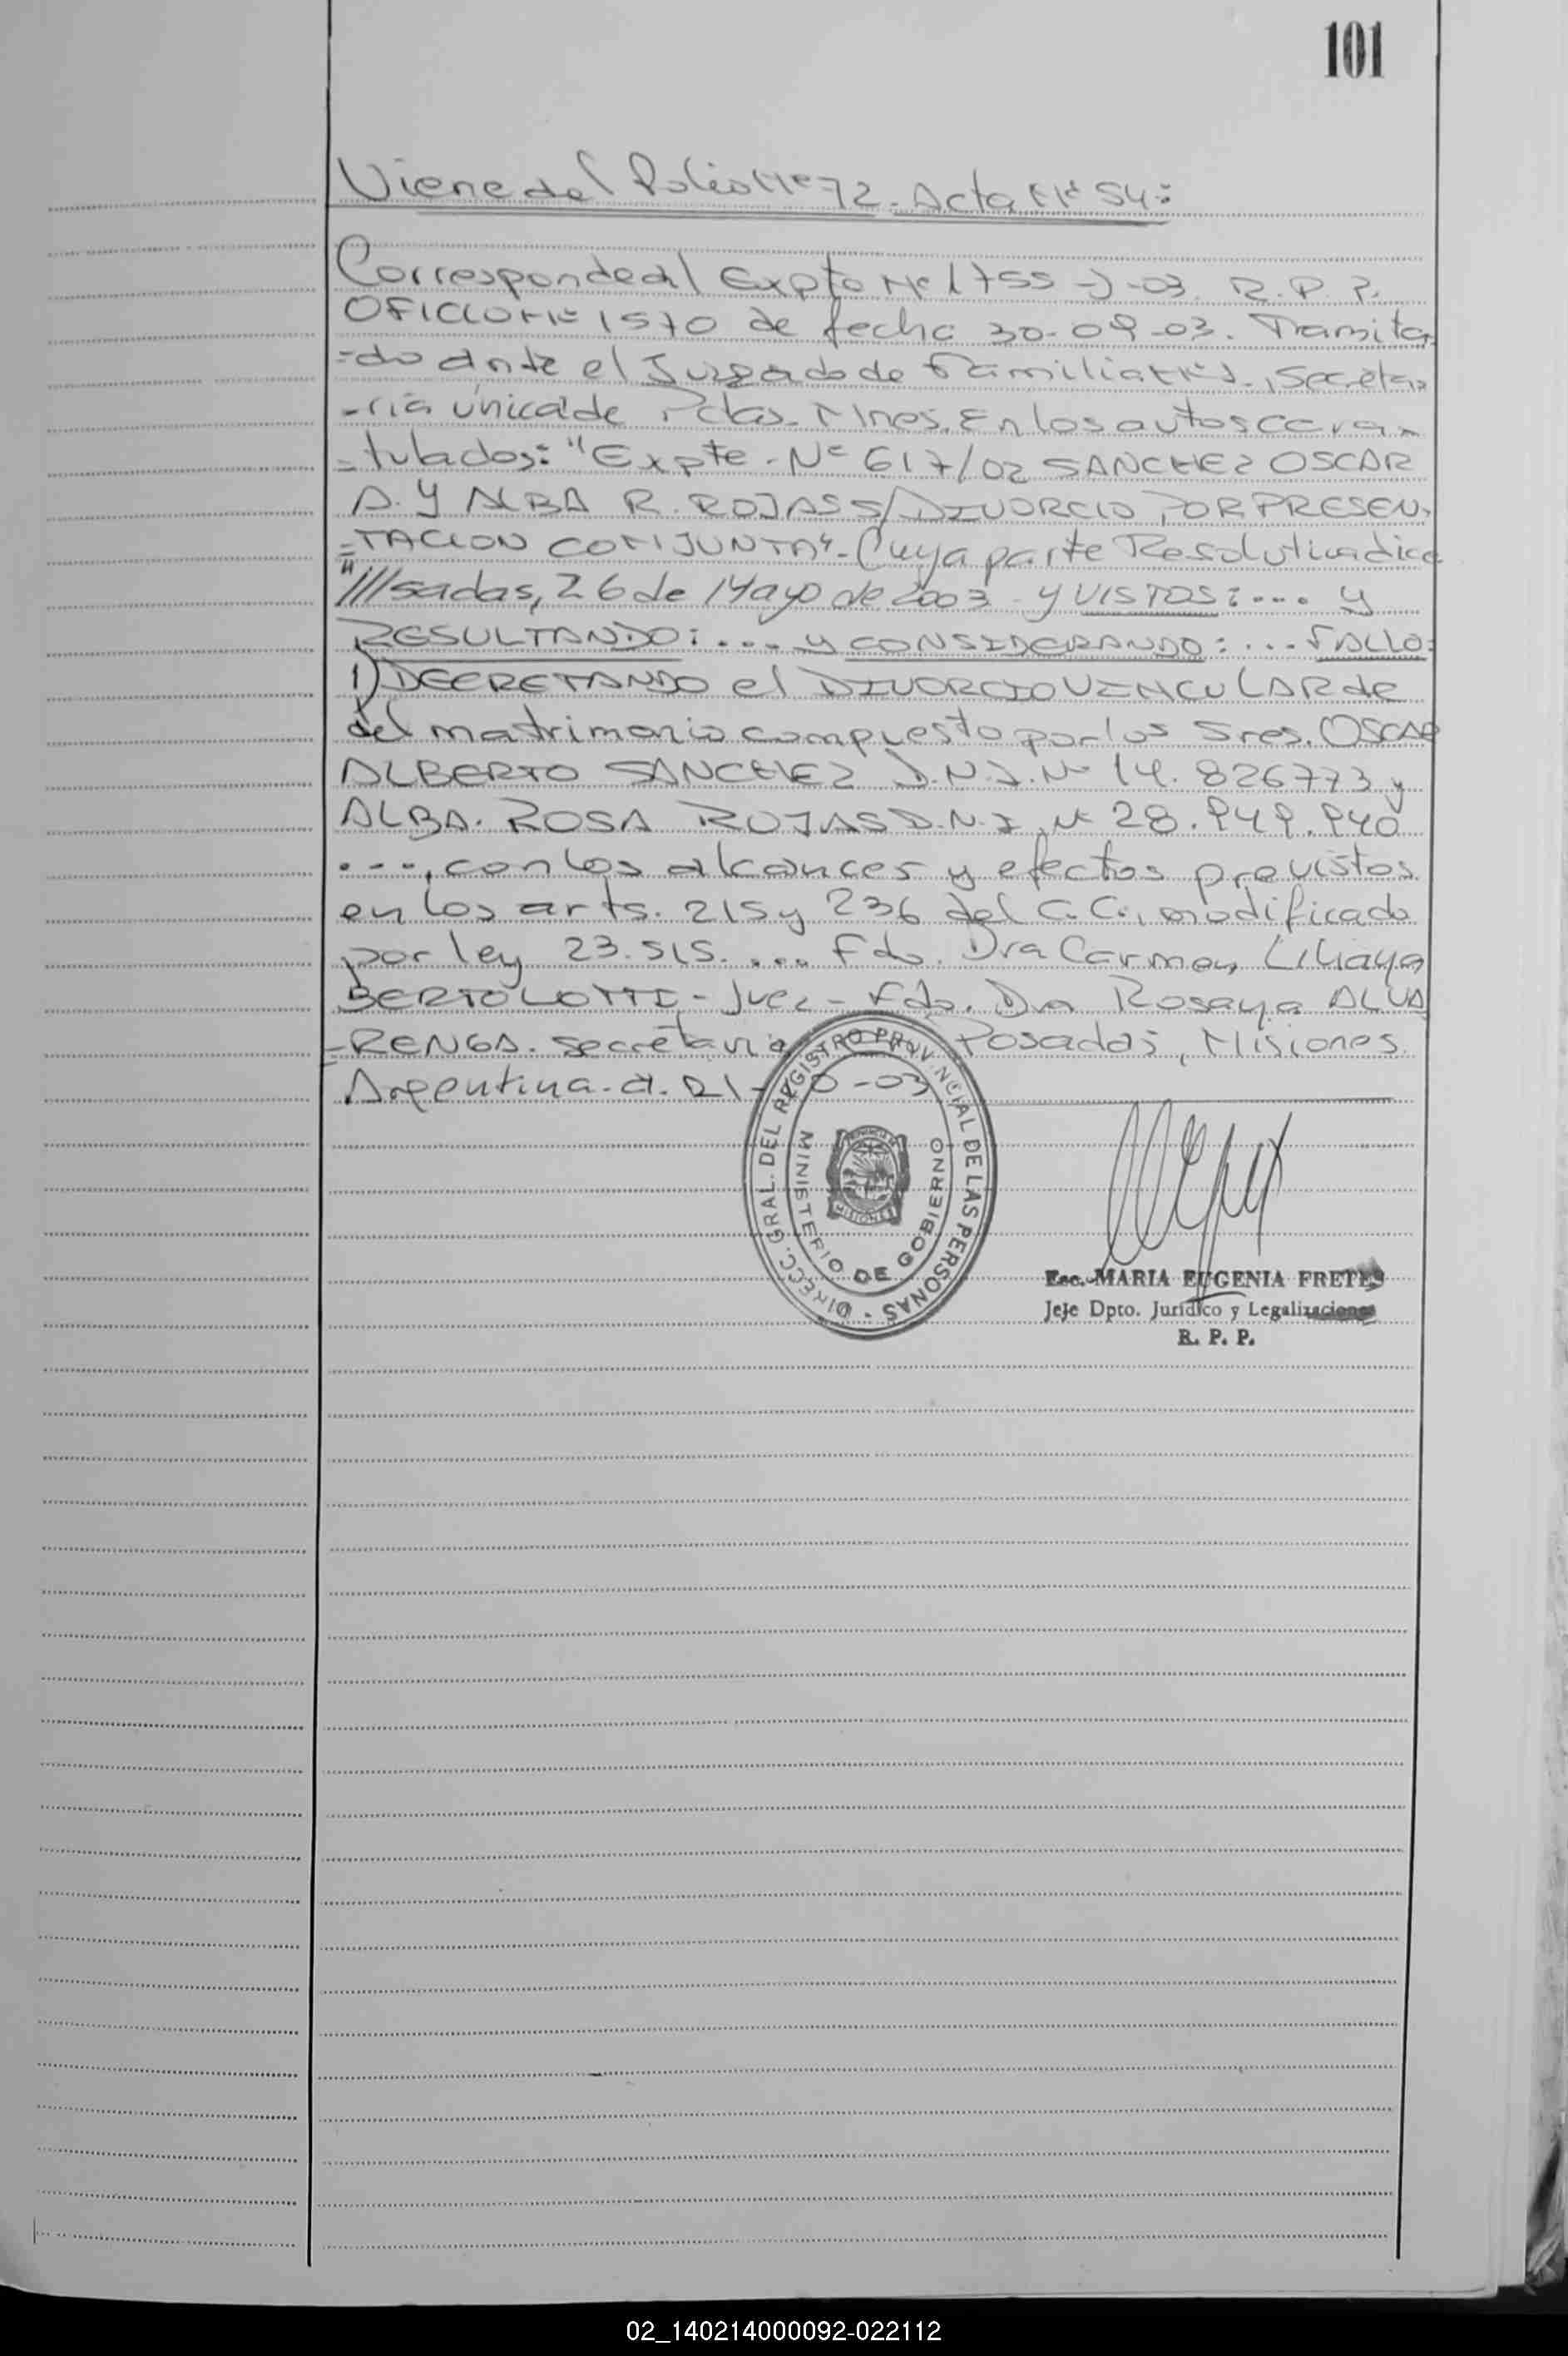 101
Viene del Folio Nº 72. Acta Nº 54:
Corresponde al Expte Nº 1755-J-03. R.P.P.
OFICIO Nº 1570 de fecha 30-09-03. Tramita
=do ante el Juzgado de Familia Nº 1., Secreta
-ria única de Pdas. Mnes. En los autos cara
=tulados: "Expte. Nº 617/02 SANCHEZ OSCAR
A. Y ALBA R. ROJAS S/DIVORCIO POR PRESEN
=TACION CONJUNTA". Cuya parte Resolutiva dice
"///sadas, 26 de Mayo de 2003 - y VISTOS:.... y
RESULTANDO:.... y CONSIDERANDO:.... FALLO:
1) DECRETANDO el DIVORCIO VINCULAR de
del matrimonio compuesto por los Sres. OSCAR
ALBERTO SANCHEZ D.N.I. Nº 14.826773 y
ALBA. ROSA ROJAS D.N.I. Nº 28.949.940
...., con los alcances y efectos previstos
en los arts. 215 y 236 del C.C., modificado
por ley 23.515. .... Fdo. Dra Carmen Liliana
BERTOLOTTI - Juez - Fdo. Dra Rosana ALVA
-RENGA. Secretaria Posadas, Misiones
Argentina. a. 21-10-03
DIRECC. GRAL. DEL REGISTRO PROVINCIAL DE LAS PERSONAS
MINISTERIO DE GOBIERNO
MISIONES
Esc. MARIA EUGENIA FRETES
Jefe Dpto. Jurídico y Legalizaciones
R. P. P.
02_140214000092-022112